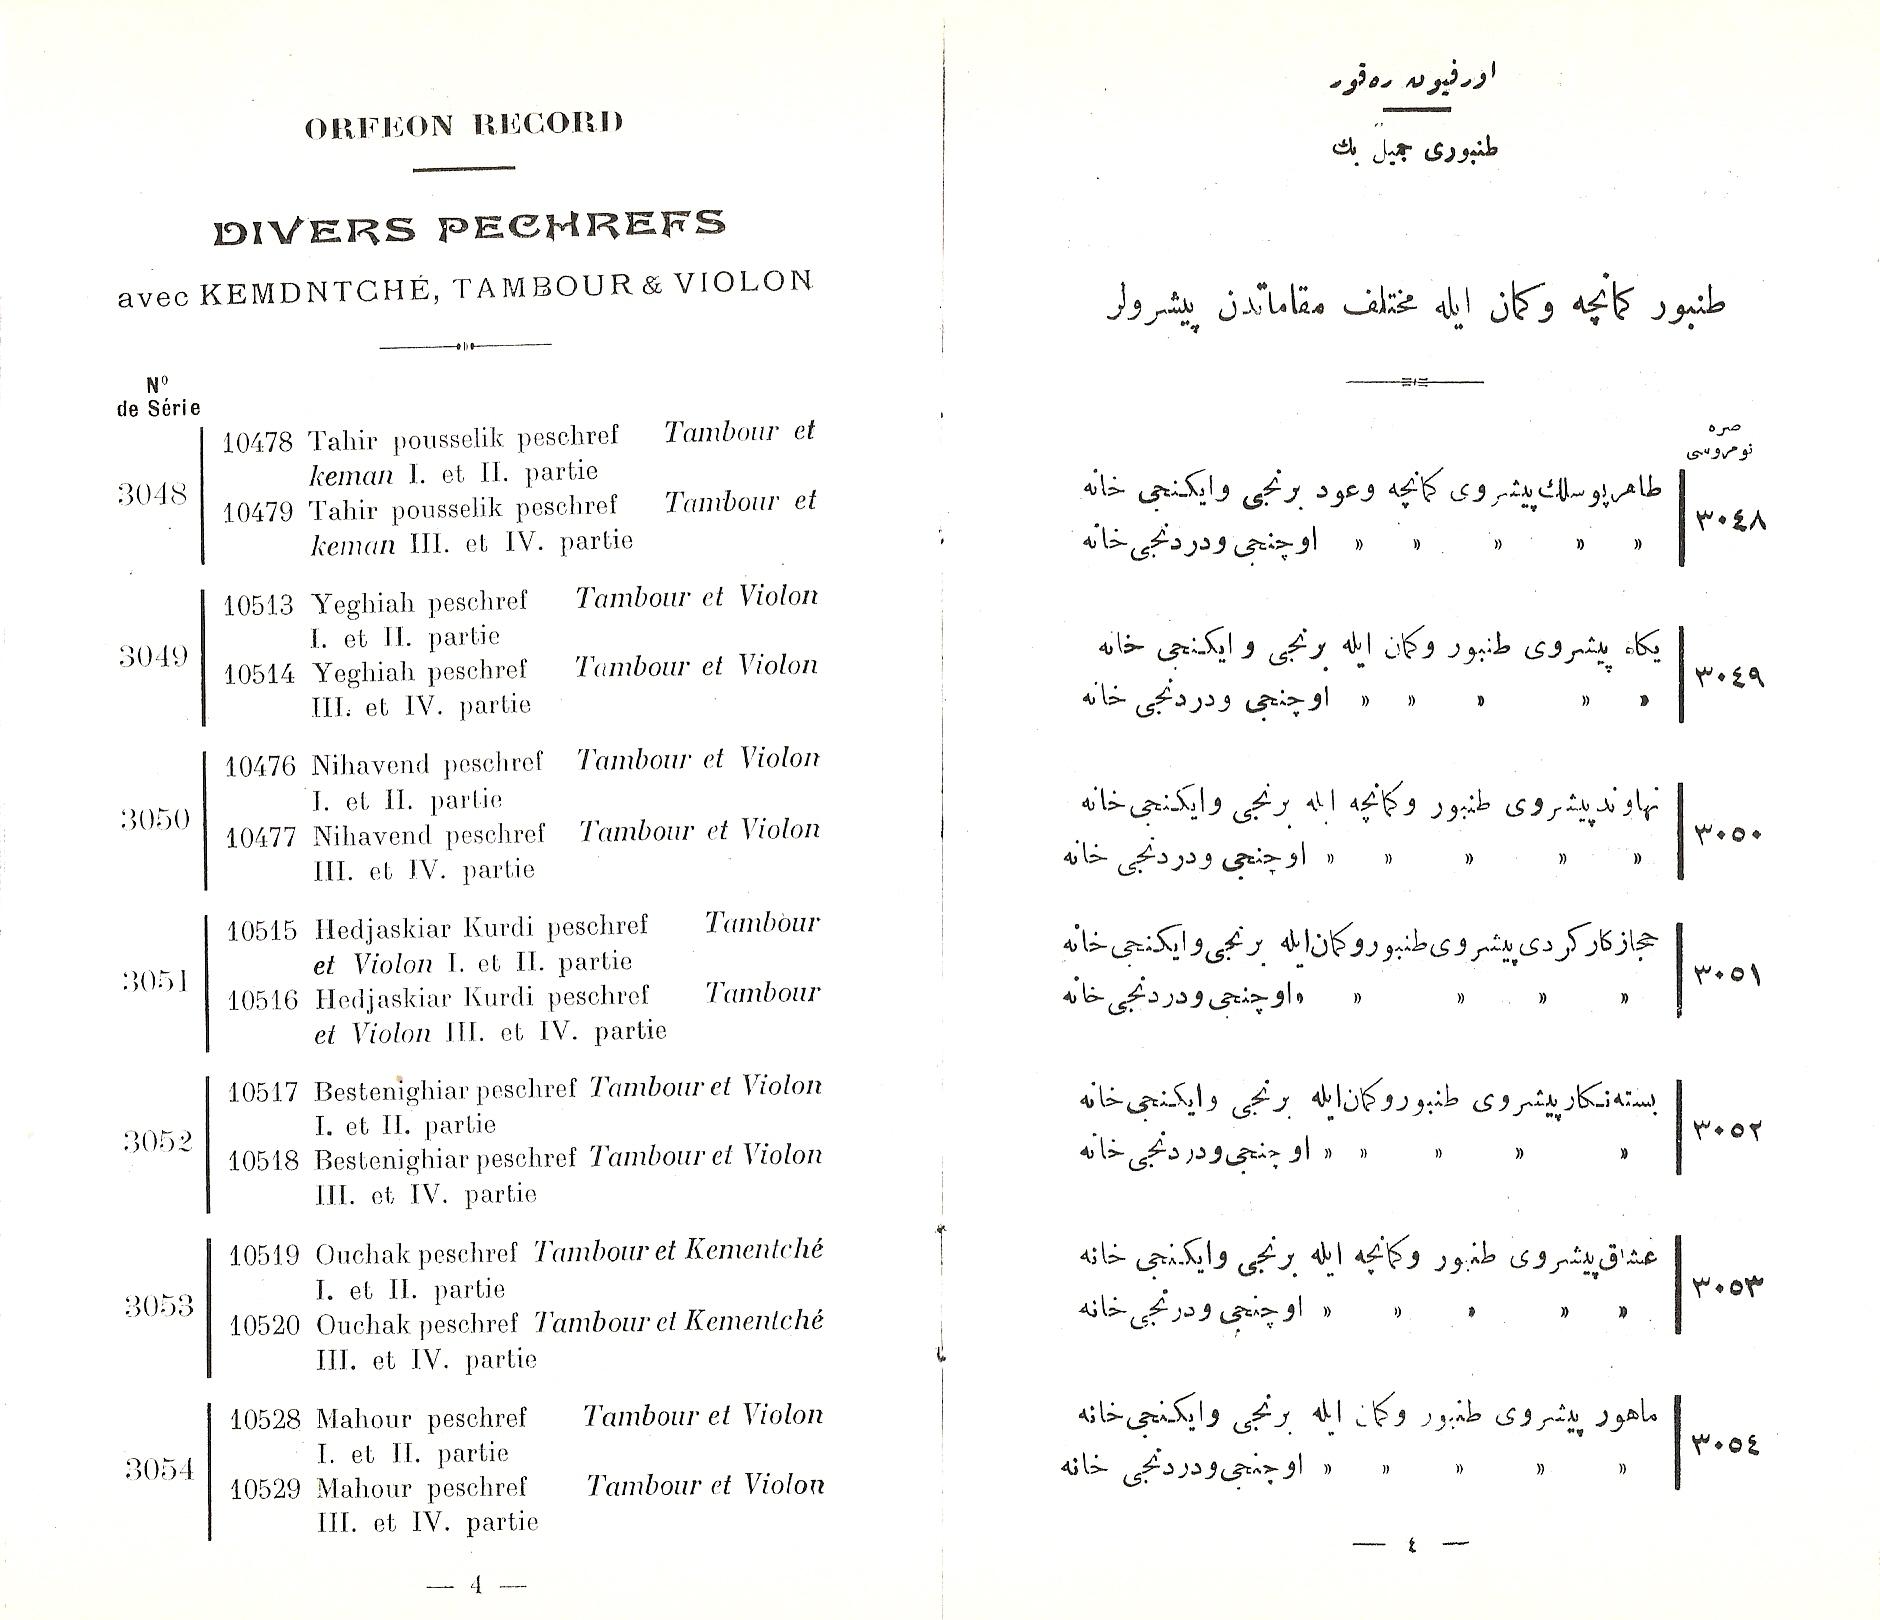 ORFEON RECORD
DIVERS PECHREFS
avec KEMDNTCHÉ, TAMBOUR & VIOLON
Nº
de Série
3048
10478 Tahir pousselik peschref Tambour et
keman I. et II. partie
10479 Tahir pousselik peschref Tambour et
keman III. et IV. partie
3049
10513 Yeghiah peschref Tambour et Violon
I. et II. partie
10514 Yeghiah peschref Tambour et Violon
III. et IV. partie
3050
10476 Nihavend peschref Tambour et Violon
I. et II. partie
10477 Nihavend peschref Tambour et Violon
III. et IV. partie
3051
10515 Hedjaskiar Kurdi peschref Tambour
et Violon I. et II. partie
10516 Hedjaskiar Kurdi peschref Tambour
et Violon III. et IV. partie
3052
10517 Bestenighiar peschref Tambour et Violon
I. et II. partie
10518 Bestenighiar peschref Tambour et Violon
III. et IV. partie
3053
10519 Ouchak peschref Tambour et Kementché
I. et II. partie
10520 Ouchak peschref Tambour et Kementché
III. et IV. partie
3054
10528 Mahour peschref Tambour et Violon
I. et II. partie
10529 Mahour peschref Tambour et Violon
III. et IV. partie
— 4 —
اورفيون ره‌قور
طنبوری جميل بك
طنبور كمانچه وكمان ايله مختلف مقاماتدن پيشرولر
صره
نومروسی
٣٠٤٨
طاهرپوسلك پيشروی كمانچه وعود برنجی وايكنجی خانه
» » » » » اوچنجی ودردنجی خانه
٣٠٤٩
يكاه پيشروی طنبور وكمان ايله برنجی وايكنجی خانه
» » » » » اوچنجی ودردنجی خانه
٣٠٥٠
نهاوند پيشروی طنبور وكمانچه ايله برنجی وايكنجی خانه
» » » » » اوچنجی ودردنجی خانه
٣٠٥١
حجازكار كردی پيشروی طنبور وكمان ايله برنجی وايكنجی خانه
» » » » » اوچنجی ودردنجی خانه
٣٠٥٢
بسته‌نكار پيشروی طنبور وكمان ايله برنجی وايكنجی خانه
» » » » » اوچنجی ودردنجی خانه
٣٠٥٣
عشاق پيشروی طنبور وكمانچه ايله برنجی وايكنجی خانه
» » » » » اوچنجی ودرنجی خانه
٣٠٥٤
ماهور پيشروی طنبور وكمان ايله برنجی وايكنجی خانه
» » » » » اوچنجی ودردنجی خانه
— ٤ —